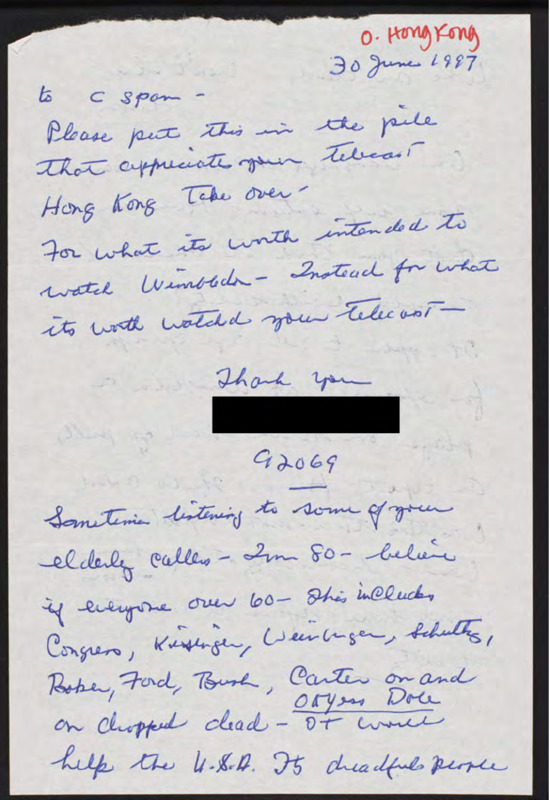 O. Hong Kong
30 June 1997
to C Span -
Please put this in the pile
that appreciates your telecast
Hong Kong Take over -
For what its worth intended to
watch Wimbledon - Instead for what
its worth watchd your telecast -
Thank you
92069
Sometimes listening to some of your
elderly callers - Im 80 - believe
if everyone over 60 - this includes
Congress, Kissinger, Weinberger, Schultz,
Baker, Ford, Bush, Carter on and
O R yess Dole
on dropped dead - It would
help the U.S.A. Its dreadful people